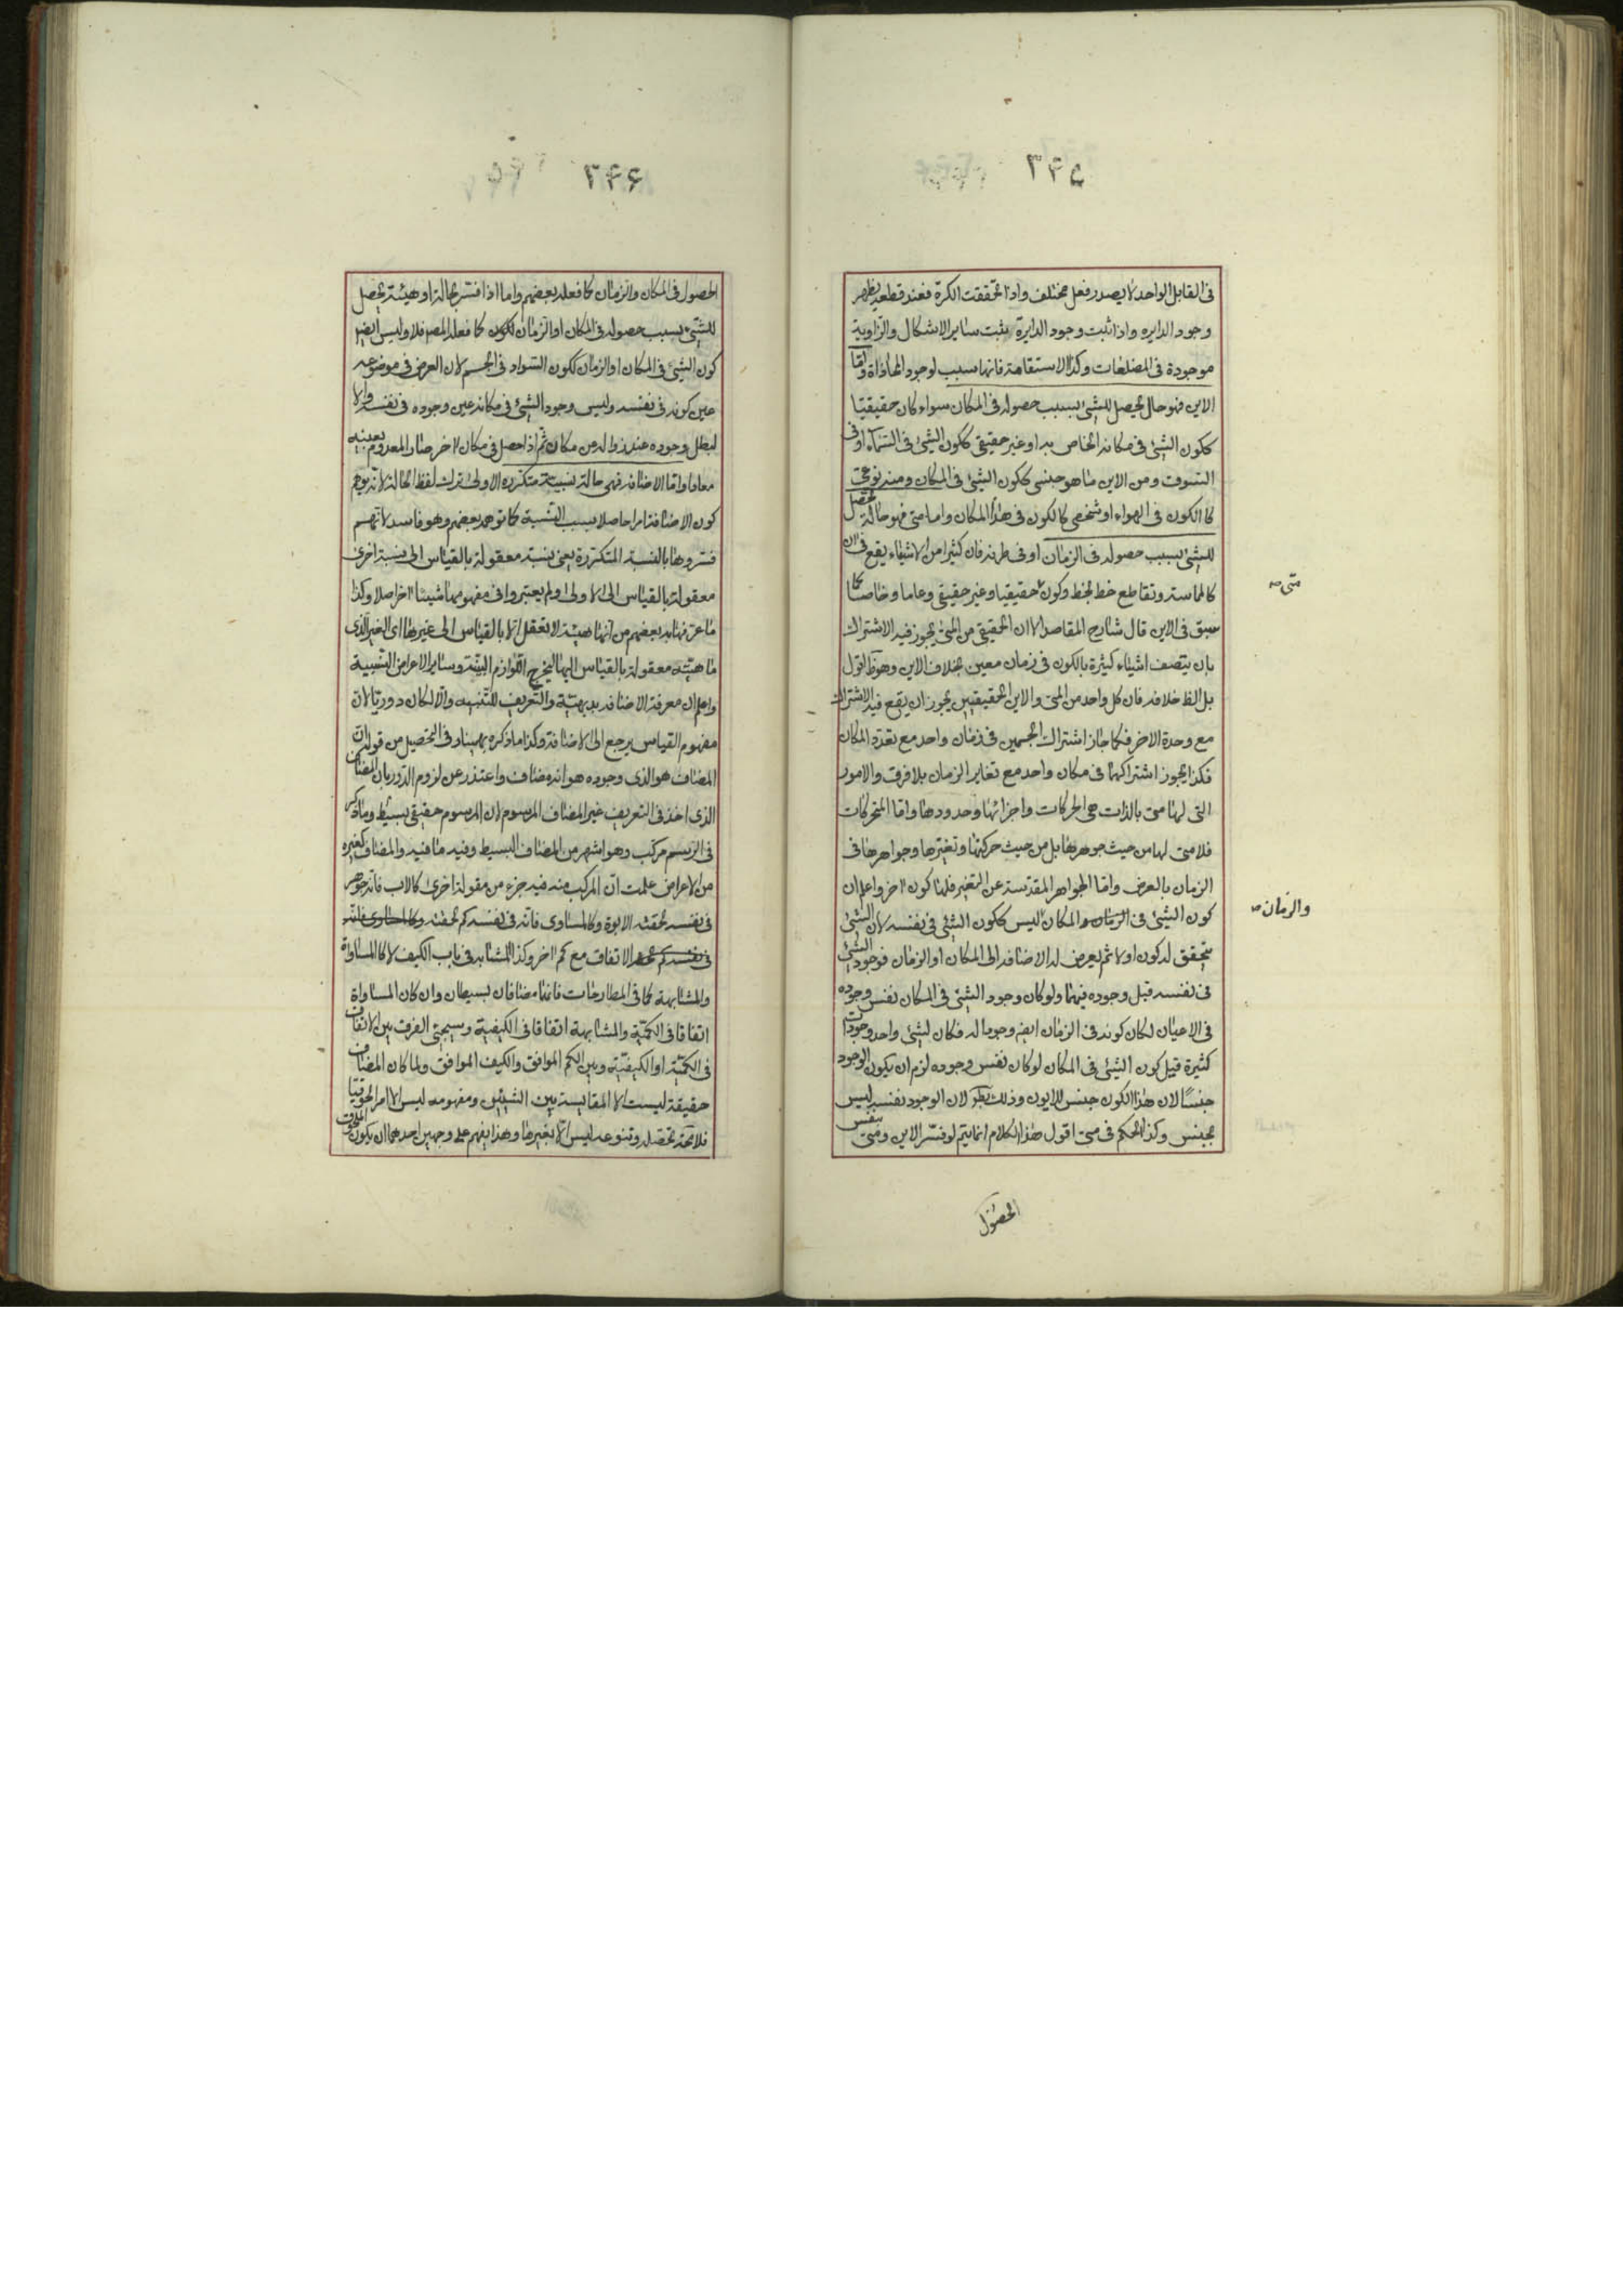 ٣٤٥
فى القابل الواحد لا يصدر فعل مختلف واذا تحققت الكرة فعند قطعه يظهر
وجود الدايره واذا ثبت وجود الدايرة يثبت ساير الاشكال والزاوية
موجودة فى المضلعات وكذا الاستقامة فانها سبب لوجود المحاذاة واما
الاين فهو حال يحصل للشئ بسبب حصوله فى المكان سواء كان حقيقيا
ككون الشئ فى مكانه الخاص به او غير حقيقى ككون الشئ فى السماء او فى
السوق ومن الاين ما هو جنسى ككون الشئ فى المكان ومنه نوعى
كالكون فى الهواء او شخصى كالكون فى هذا المكان واما متى فهو حالة تحصل
للشئ بسبب حصوله فى الزمان او فى طرفه فان كثيرا من الاشياء يقع فى ان
كالمماسة وتقاطع خط لخط وكون حقيقيا وغير حقيقى وعاما وخاصا كما
متى صه
سبق فى الاين قال شارح المقاصد الا ان الحقيقى من المتى يجوز فيه الاشتراك
بان يتصف اشياء كثيرة بالكون فى زمان معين بخلاف الاين وهو ظ اقول
بل الظ خلافه فان كل واحد من المتى والاين الحقيقيين يجوز ان يقع فيه الاشتراك
مع وحدة الاخر فكما جاز اشتراك الجسمين فى زمان واحد مع تعدد المكان
فكذا يجوز اشتراكهما فى مكان واحد مع تغاير الزمان بلا فرق والامور
التى لها متى بالذات هى الحركات واجزائها وحدودها واما المتحركات
فلا متى لها من حيث جوهرها بل من حيث حركتها وتغيرها وجواهرها فى
الزمان بالعرض واما الجواهر المقدسة عن التغير فلها كون اخر واعلم ان
كون الشئ فى المكان ليس ككون الشئ فى نفسه لان الشئ
والزمان صه
يتحقق له كون اولا ثم يعرض له الاضافه الى المكان او الزمان فوجود الشئ
فى نفسه قبل وجوده فيهما ولو كان وجود الشئ فى المكان نفس وجوده
فى الاعيان لكان كونه فى الزمان ايضا وجودا له فكان لشئ واحد وجودات
كثيرة قيل كون الشئ فى المكان لو كان نفس وجوده لزم ان يكون الوجود
جنسًا لان هذا الكون جنس للايون وذلك نظر لان الوجود نفسه ليس
بجنس وكذا الحكم فى متى اقول هذا الكلام انما يتم لو فسر الاين ومتى بنفس
الحصول
٣٤٦
الحصول فى المكان والزمان كما فعله بعضهم واما اذا فسر بحالة او هيئة تحصل
للشئ بسبب حصوله فى المكان او الزمان ككون كما فعله المصر فلا وليس ايضا
كون الشئ فى المكان او الزمان ككون السواد فى الجسم لان العرض فى موضوعه
عين كونه فى نفسه وليس وجود الشئ فى مكانه عين وجوده فى نفسه والا
لبطل وجوده عند زواله من مكان ثم اذا حصل فى مكان اخر صار المعدوم بعينه
معادا واما الاضافه فهى حالة نسبية متكرره الاولى ترك لفظ الحالة لانه يوهم
كون الاضافة امرا حاصلا بسبب النسبة كما توهمه بعضهم وهو فاسد لانهم
فسروها بالنسبة المتكررة يعنى نسبة معقولة بالقياس الى نسبة اخرى
معقولة بالقياس الى الاولى ولم يعتبروا فى مفهومهما شيئا اخر اصلا وكذا
ما عرفها به بعضهم من انها هيئة لا تعقل الا بالقياس الى غيرها اى الغير الذى
ماهيته معقولة بالقياس اليها ليخرج اللوازم البينة وساير الاعراض النسبية
واعلم ان معرفة الاضافه بديهية والتعريف للتنبيه والا لكان دوريا لان
مفهوم القياس يرجع الى الاضافة وكذا ما ذكره بهمنيار فى التحصيل من قوله ان
المضاف هو الذى وجوده هو انه مضاف واعتذر عن لزوم الدور بان المضاف
الذى اخذ فى التعريف غير المضاف المرسوم لان المرسوم حقيقى بسيط وما ذكر
فى الرسم مركب وهو اشهر من المضاف البسيط وفيه ما فيه والمضاف كغيره
من الاعراض علمت ان المركب منه فيه جزء من مقولة اخرى كالاب فانه جوهر
فى نفسه لحقته الابوة وكالمساوى فانه فى نفسه كم لحقته
الاتفاق مع كم اخر وكذا المشابه فى باب الكيف لا كالمساواة
والمشابهة كما فى المطارحات فانهما مضافان بسيطان وان كان المساواة
اتفاقا فى الكمية والمشابهة اتفاقا فى الكيفية وسيجئ الفرق بين الاتفاق
فى الكمية او الكيفية وبين الكم الموافق والكيف الموافق ولما كان المضاف
حقيقة ليست الا المقايسة بين الشيئين ومفهومه ليس الا امر الحوقيا
فلا محة تحصله وتنوعه ليس الا بغيرها وهذا يفهم على وجهين احدهما ان يكون الملحوق